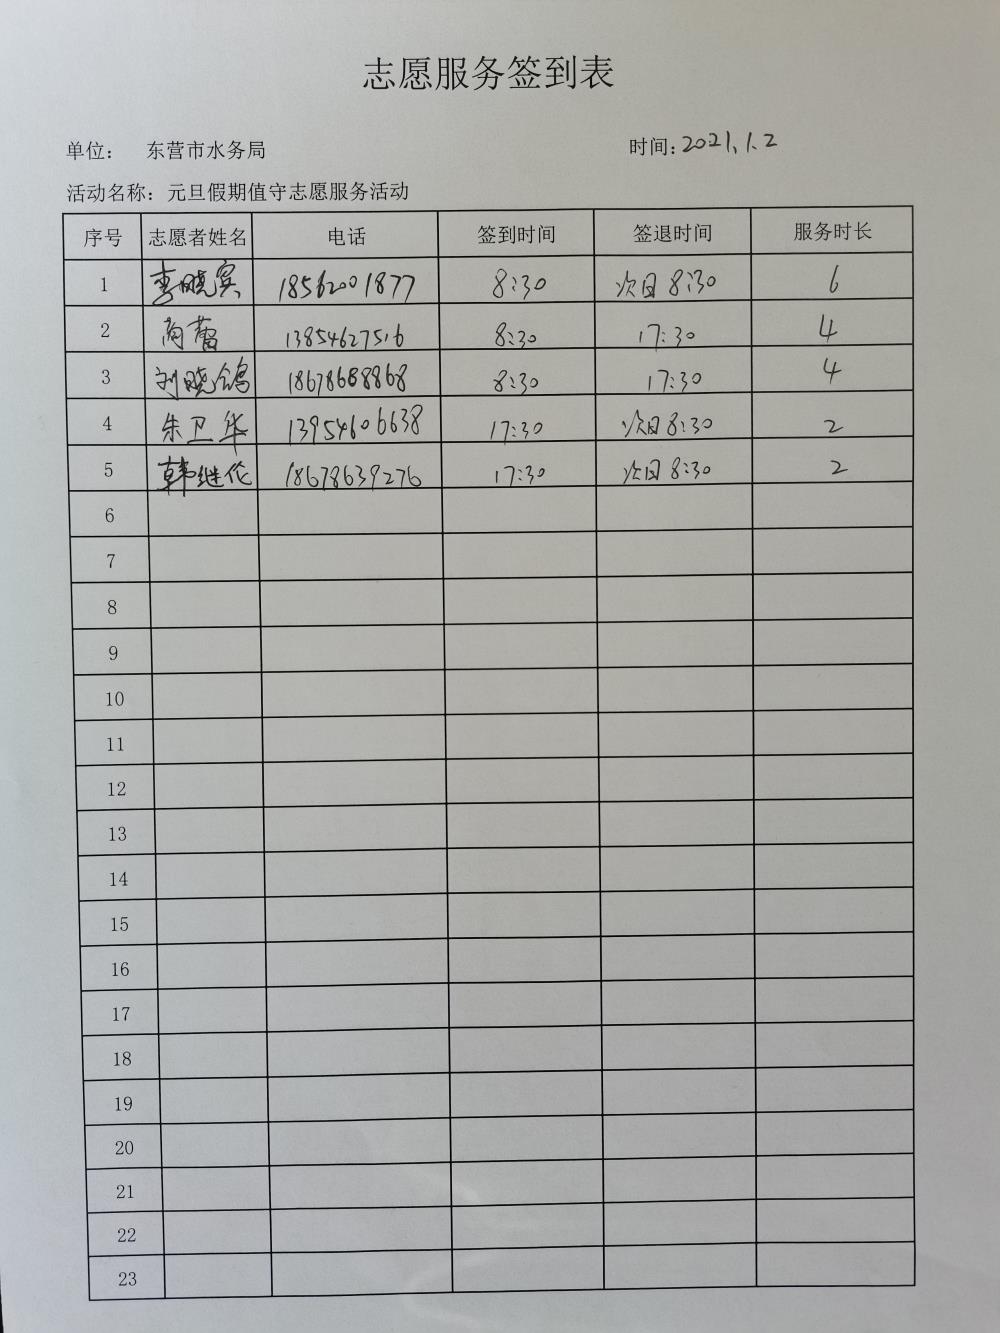 志愿服务签到表
单位： 东营市水务局 时间：2021.1.2
活动名称：元旦假期值守志愿服务活动
序号 志愿者姓名 电话 签到时间 签退时间 服务时长
1 李晓宾 18562001877 8:30 次日8:30 6
2 蕾 13854627516 8:30 17:30 4
3 刘晓鸽 18678688868 8:30 17:30 4
4 朱卫华 13954606638 17:30 次日8:30 2
5 韩继伦 18678639276 17:30 次日8:30 2
6
7
8
9
10
11
12
13
14
15
16
17
18
19
20
21
22
23